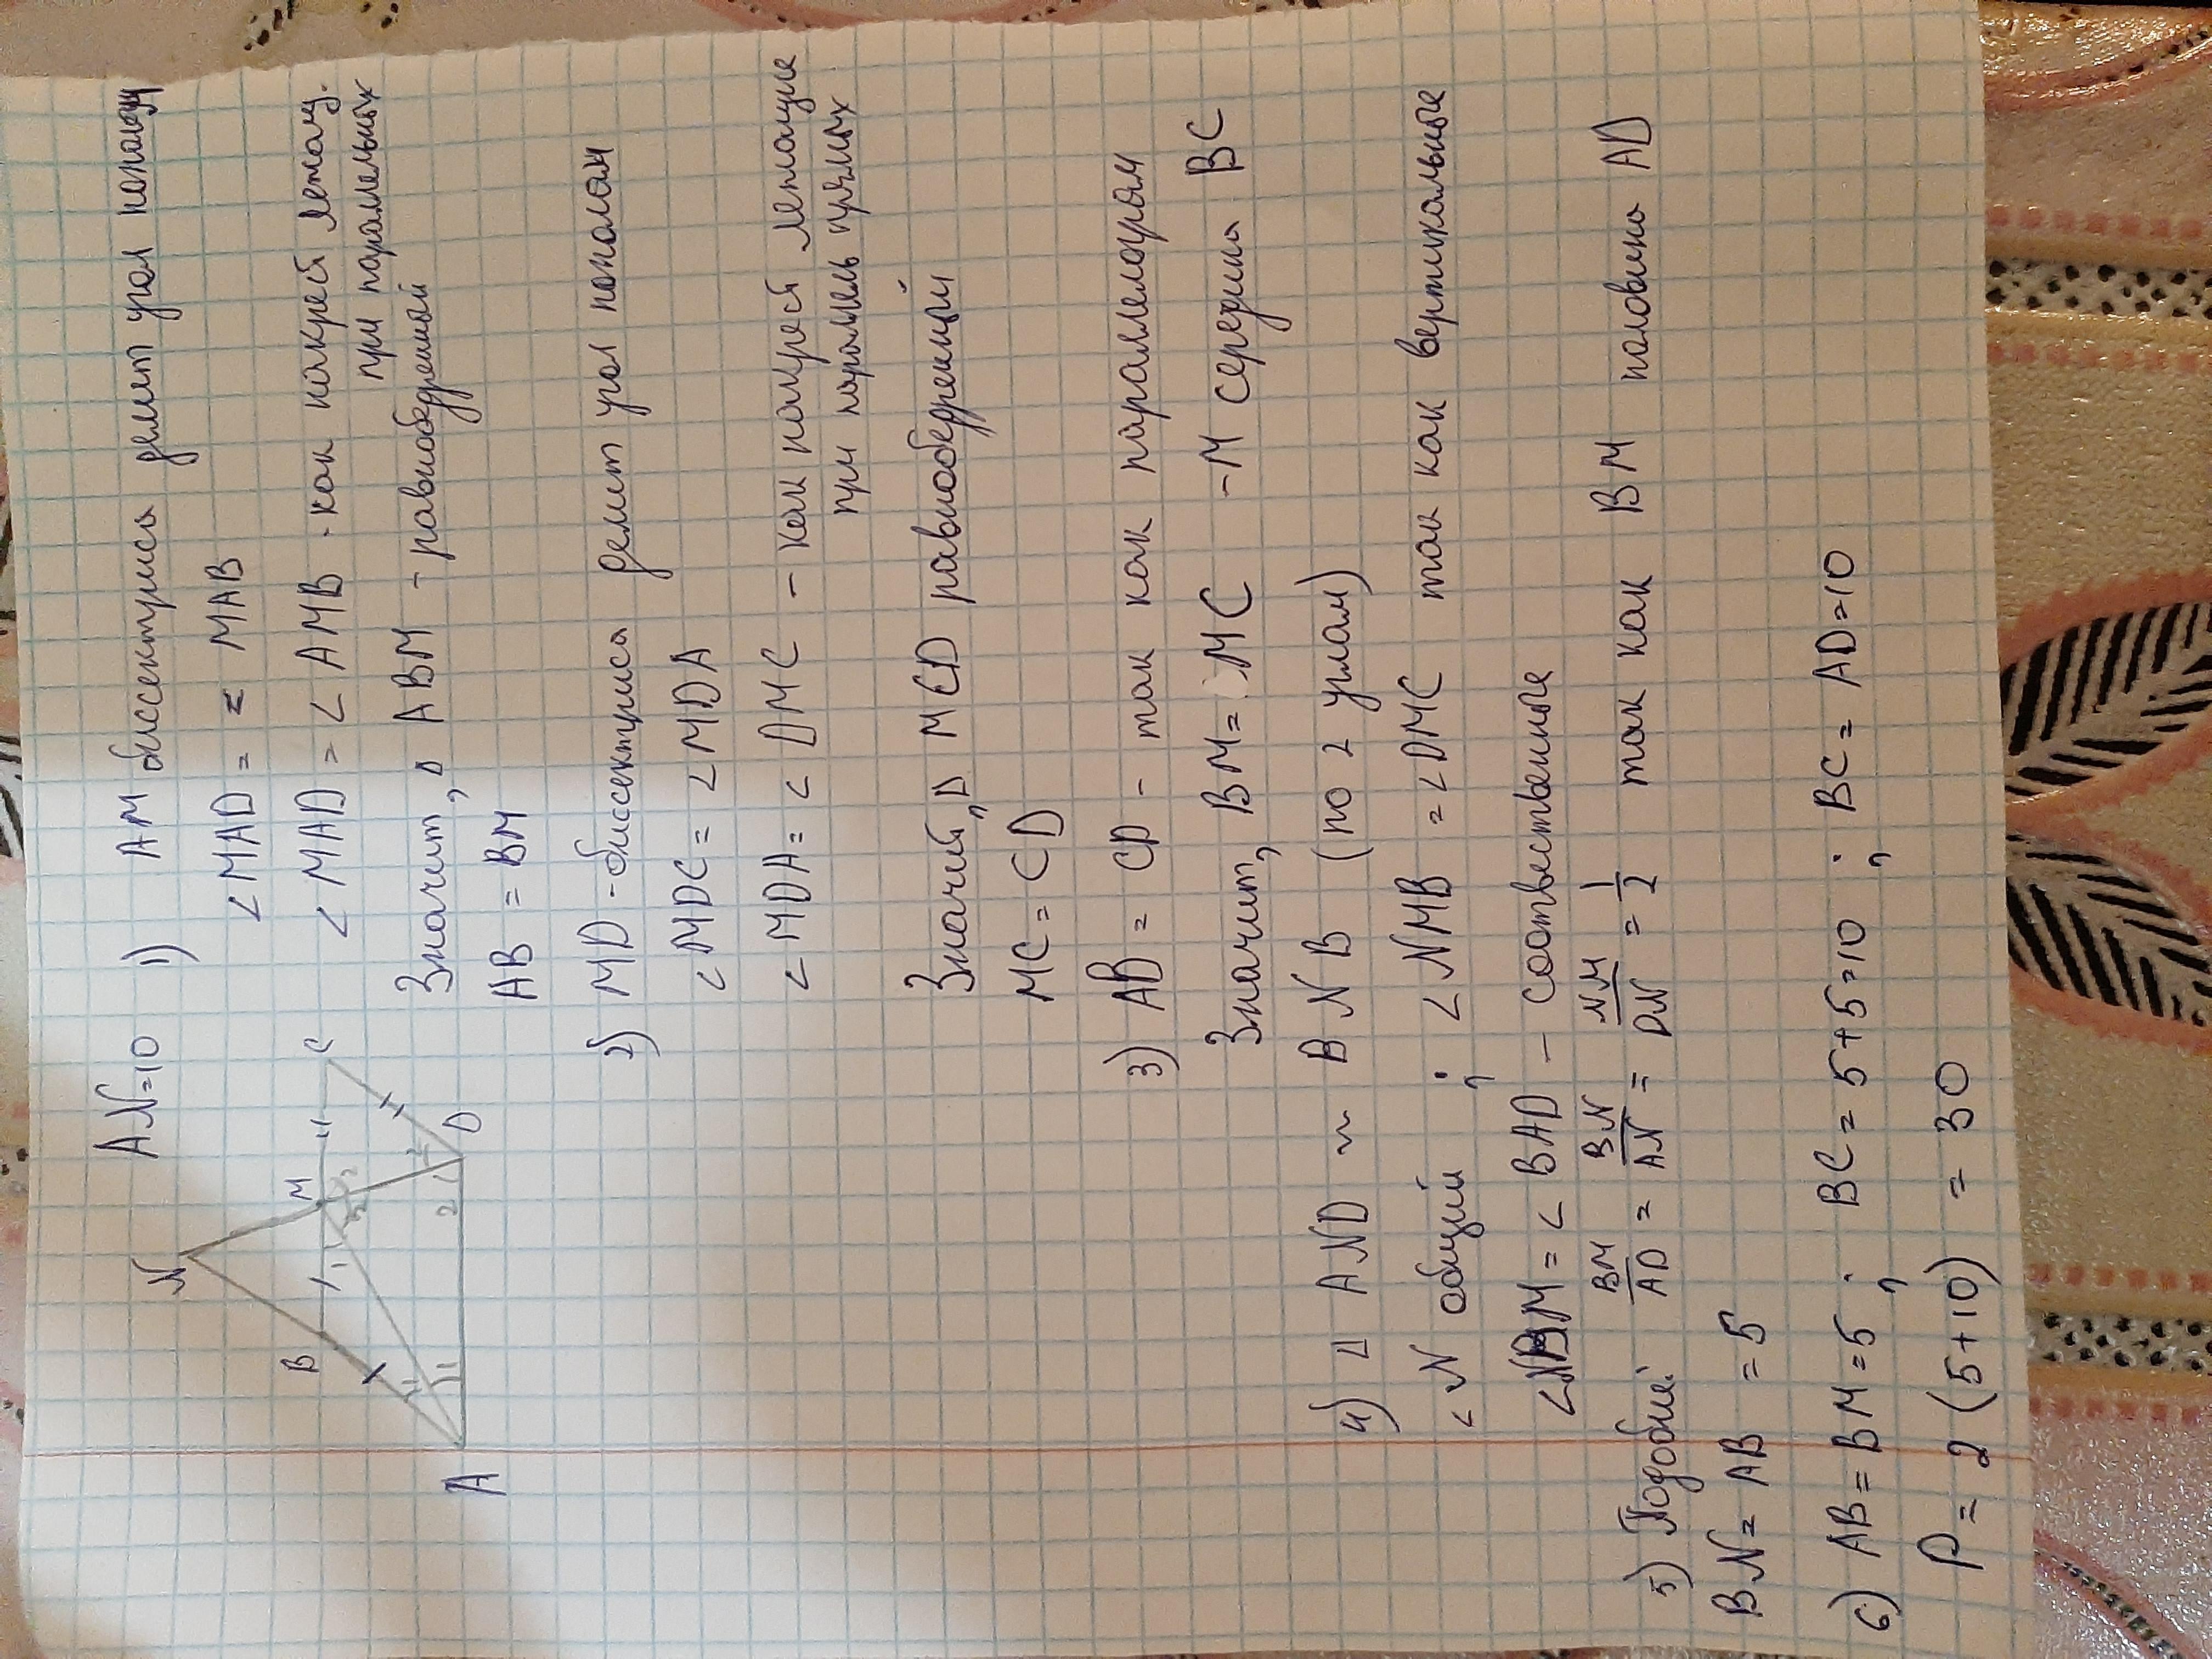 AN=10
N
B
M
C
A
D
1) AM биссектриса делит угол пополам
<MAD = < MAB
< MAD = < AMB - как накрест лежащ.
при параллельных
Значит, Δ ABM - равнобедренный
AB = BM
2) MD - биссектриса делит угол пополам
< MDC = < MDA
< MDA = < DMC - как накрест лежащие
при параллель прямых
Значит, Δ MCD равнобедренный
MC = CD
3) AB = CD - так как параллелограм
Значит, BM = MC - M середина BC
4) Δ AND ~ BNB (по 2 углам)
< N общий ; < NMB = < DMC так как вертикальные
<NBM = < BAD - соотвественные
5) Подобие: BM/AD = BN/AN = NM/DN = 1/2 так как BM половина AD
BN = AB = 5
6) AB = BM = 5 ; BC = 5+5=10 ; BC = AD = 10
P = 2 (5+10) = 30